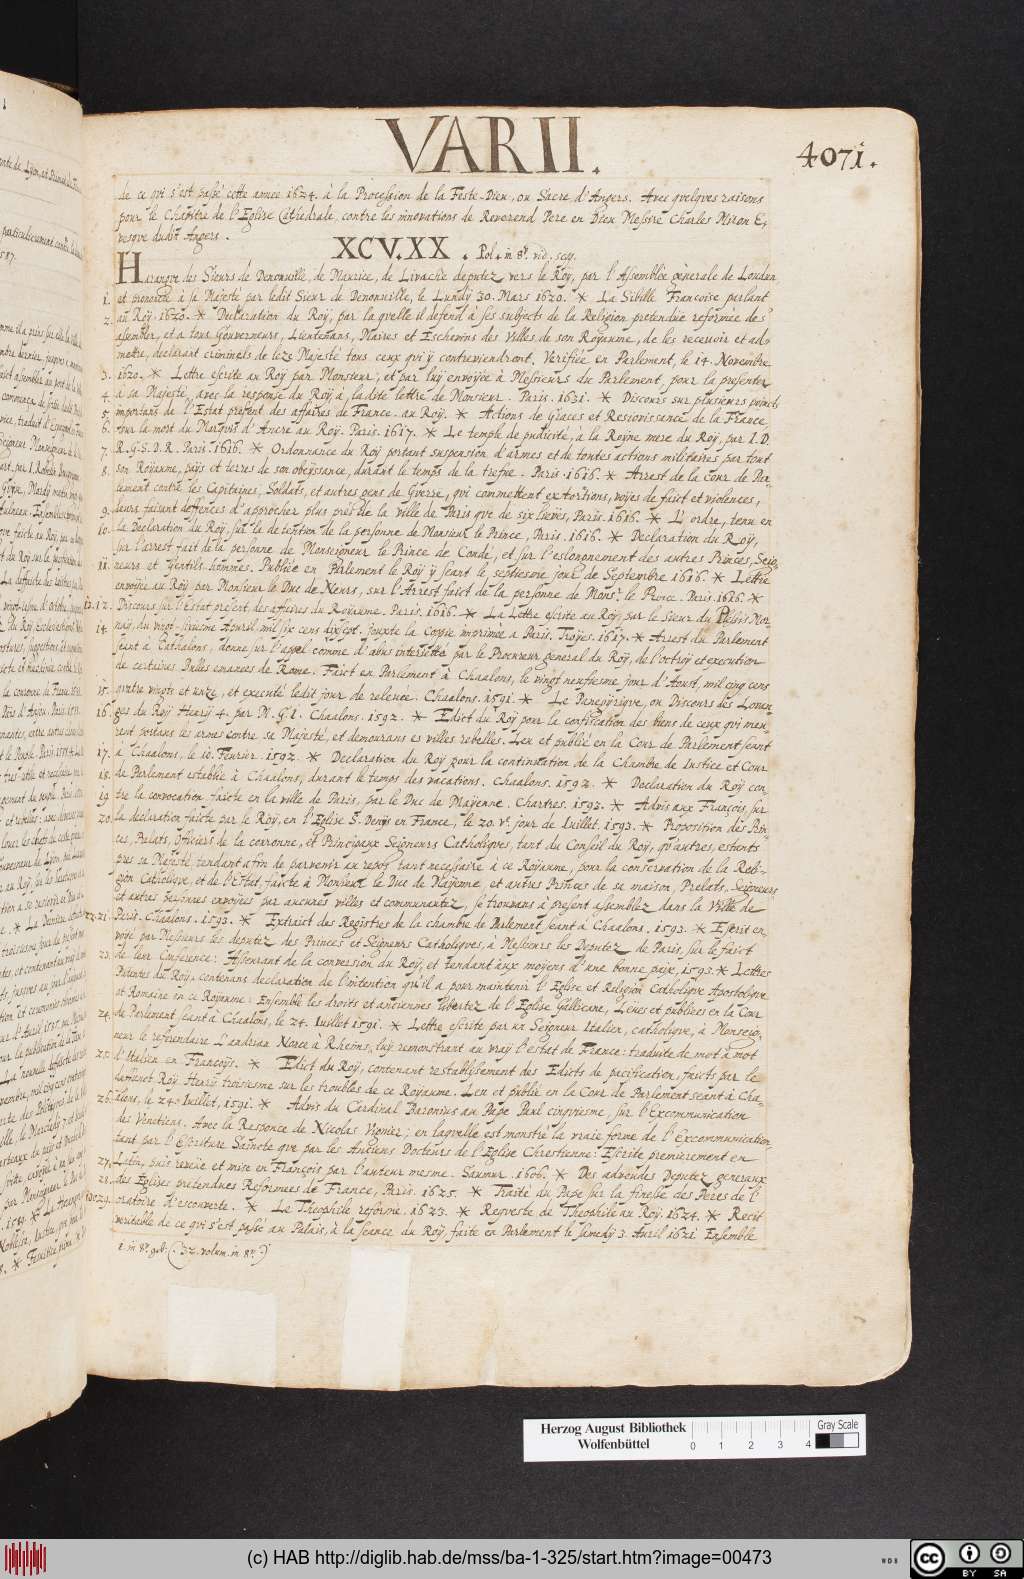 VARII.
4071.
de ce qui s'est passé cette annee 1624. à la Procession de la Feste-Dieu, ou Sacre d'Angers. Avec quelques raisons
pour le Chapitre de l'Eglise Cathedrale, contre les innovations de Reverend Pere en Dieu Messire Charles Miron E,
vesque dudit Angers.
XCV.XX. Pol. in 8º. vid. seq.
Harangue des Sieurs de Denonuille, de Maurice, de Livache deputez vers le Roy, par l'Assemblée generale de Loudun
1. et prononcée à sa Majesté par ledit Sieur de Denonuille, le Lundy 30. Mars 1620. * La Sibille Francoise parlant
2. au Roy. 1620. * Declaration du Roy, par la quelle il defend à ses subjects de la Religion pretendue reformée des
assembler, et a tous Gouverneurs, Lieutenans, Maires et Eschevins des Villes de son Royaume, de les recevoir et ad,
mettre, declarant criminels de leze Majesté tous ceux qui y contreviendront. Verifiée en Parlement, le 14. Novembre
3. 1620. * Lettre escrite au Roy par Monsieur, et par luy envoyée à Messieurs du Parlement, pour la presenter
4. à sa Majesté, avec la response du Roy à la dite lettre de Monsieur. Paris. 1631. * Discours sur plusieurs poincts
5. importans de l'Estat present des affaires de France. au Roy. * Actions de Graces et Resiouissance de la France,
6. sur la mort du Marquis d'Ancre au Roy. Paris. 1617. * Le temple de pudicité, à la Royne mere du Roy, par I. D.
7. R.G.S.D.R. Paris. 1616. * Ordonnance du Roy portant suspension d'armes et de toutes actions militaires par tout
8. son Royaume, pays et terres de son obeyssance, durant le temps de la trefue. Paris. 1616. * Arrest de la Cour de Par,
lement contre les Capitaines, Soldats, et autres gens de Guerre, qui commettent extortions, voyes de faict et violences,
9. leurs faisant deffences d'approcher plus prés de la ville de Paris que de six lieües, Paris. 1616. * L'ordre, tenu en
10. la Declaration du Roy, sur la detention de la personne de Monsieur le Prince, Paris. 1616. * Declaration du Roy,
sur l'arrest fait de la personne de Monseigneur le Prince de Condé, et sur l'eslongnement des autres Princes, Seig,
11. neurs et Gentils-hommes. Publiée en Parlement le Roy y seant le septiesme jour de Septembre 1616. * Lettre
envoyée au Roy par Monsieur le Duc de Neuers, sur l'Arrest faict de la personne de Mons.r le Prince. Paris. 1616. *
12. 13. Discours sur l'Estat present des affaires du Royaume. Paris. 1616. * La Lettre escrite au Roy, par le Sieur du Plessis Mor,
14. nay, du vingt-sixiesme Apuril, mil six cens dixsept. jouxte la Coppie imprimée a Paris. Troyes. 1617. * Arrest du Parlement
seant à Chaalons, donné sur l'appel comme d'abus interjetté par le Procureur general du Roy, de l'octroy et execution
de certaines Bulles emanees de Rome. Faict en Parlement à Chaalons, le vingt neufiesme jour d'Aoust, mil cinq cens
15. quatre vingts et unze, et executé ledit jour de releuée. Chaalons. 1591. * Le Panegyrique, ou Discours des Louan,
16. ges du Roy Henry 4. par M.G.I. Chaalons. 1592. * Edict du Roy pour la confiscation des biens de ceux qui mau,
rent portans les armes contre sa Majesté, et demourans es villes rebelles. Leu et publié en la Cour de Parlement seant
17. à Chaalons, le 18. Feurier. 1592. * Declaration du Roy pour la continuation de la Chambre de Iustice et Cour
18. de Parlement establie à Chaalons, durant le temps des vacations. Chaalons. 1592. * Declaration du Roy con,
19. tre la convocation faicte en la ville de Paris, par le Duc de Mayenne. Chartres. 1593. * Advis aux François, sur
20. la declaration faicte par le Roy, en l'Eglise S. Denys en France, le 20. v.e jour de Iuillet. 1593. * Proposition des Prin,
ces, Prelats, Officiers de la couronne, et Principaux Seigneurs Catholiques, tant du Conseil du Roy, qu'autres, estants
pres sa Majesté tendant afin de parvenir au repos tant necessaire à ce Royaume, pour la conservation de la Reli,
gion Catholique, et de l'Estat, faicte à Monsieur le Duc de Mayenne, et autres Princes de sa maison, Prelats, Seigneurs
et autres personnes envoyées par aucunes villes et communautez, se trouuans à present assemblez dans la Ville de
22. 21. Paris. Chaalons. 1593. * Extraict des Registres de la chambre de Parlement, seant à Chaalons. 1593. * Escrit en,
voyé par Messieurs les deputez des Princes et Seigneurs Catholiques, à Messieurs les Deputez de Paris, sur le faict
23. de leur Conference: Asseurant de la conversion du Roy, et tendant aux moyens d'une bonne paix, 1593. * Lettes
Patentes du Roy, contenans declaration de l'intention qu'il a pour maintenir l'Eglise et Religion Catholique Apostolique
et Romaine en ce Royaume: Ensemble les droits et anciennes libertez de l'Eglise Gallicane, Leues et publiees en la Cour
24. de Parlement, seant à Chaalons, le 24. Iuillet 1591. * Lettre escrite par un Seigneur Italien, catholique, à Monseig,
neur le referendaire L'andrian Nonce à Rheims, luy remonstrant au vray l'estat de France: traduite de mot à mot
25. d'Italien en Françoys. * Edict du Roy, contenant restablissement des Edicts de pacification, faicts par le
deffunct Roy Henry troisiesme sur les troubles de ce Royaume. Leu et publié en la Cour de Parlement seant à Cha,
26. alons, le 24. Iuillet, 1591. * Advis du Cardinal Baronius au Pape Paul cinquiesme, sur l'Excommunication
des Venetiens. Avec la Responce de Nicolas Vignier; en laquelle est monstré la vraie forme de l'Excommunication
tant par l'Escriture Saincte que par les Anciens Docteurs de l'Eglise Chrestienne: Escrite premierement en
27. Latin, puis reveüe et mise en François par l'auteur mesme. Saumur. 1606. * Des advendes Deputez generaux
28. des Eglises pretendues Reformees de France, Paris. 1625. * Traité du Pape sur la finesse des Peres de l'
29. oratoire d'escouverte. * Le Theophile reformé. 1623. * Requeste de Theophile au Roy. 1624. * Recit
veritable de ce qui s'est passé au Palais, à la seance du Roy, faite en Parlement le samedy 3. Auril 1621. Ensemble
1. in 8º. geb: (.32. volum. in 8º.)
Herzog August Bibliothek
Wolfenbüttel
0 1 2 3 4
Gray Scale
(c) HAB http://diglib.hab.de/mss/ba-1-325/start.htm?image=00473
WDB
CC BY SA